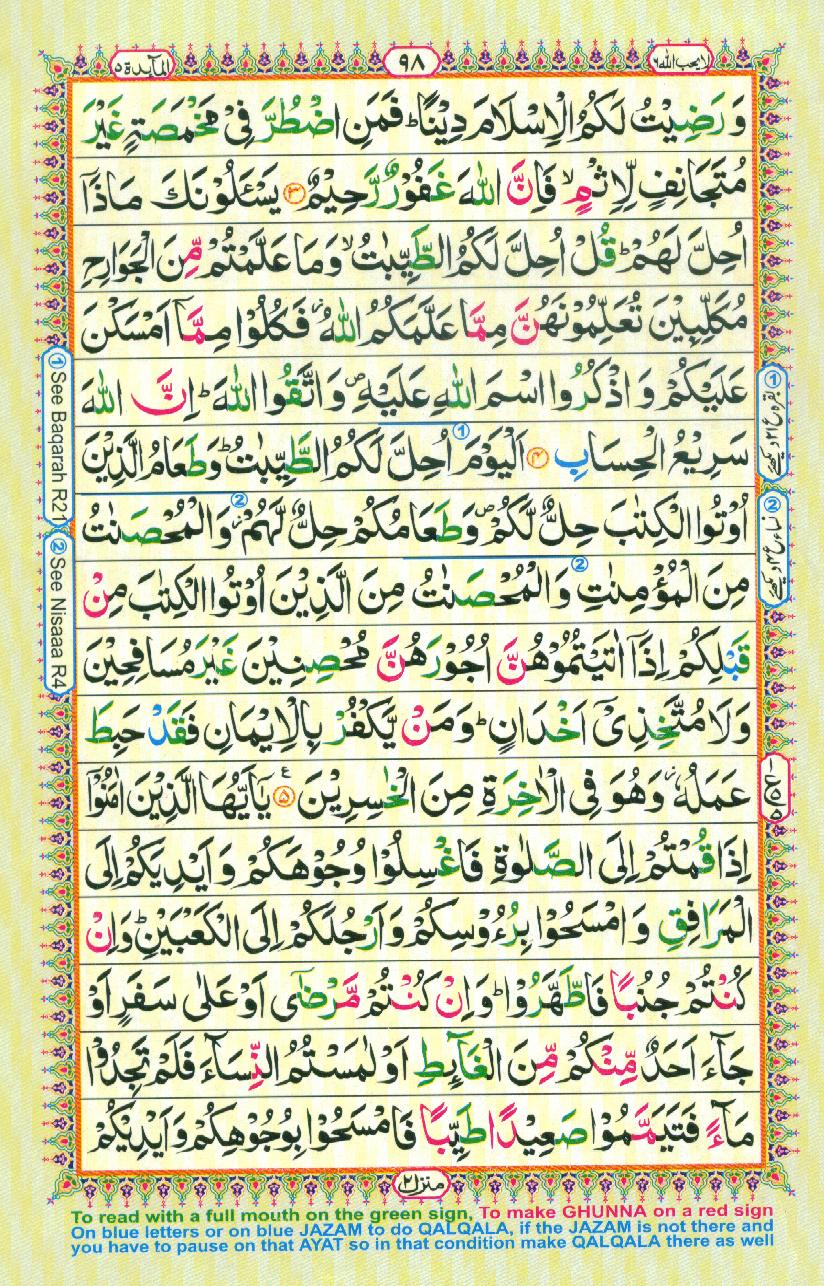 لايحب الله ٦
٩٨
المآىدة ٥
وَرَضِيْتُ لَكُمُ الْاِسْلَامَ دِيْنًا ؕ فَمَنِ اضْطُرَّ فِيْ مَخْمَصَةٍ غَيْرَ
مُتَجَانِفٍ لِّاِثْمٍ ۙ فَاِنَّ اللّٰهَ غَفُوْرٌ رَّحِيْمٌ ۝۳ يَسْـَٔلُوْنَكَ مَاذَاۤ
اُحِلَّ لَهُمْ ؕ قُلْ اُحِلَّ لَكُمُ الطَّيِّبٰتُ ۙ وَمَا عَلَّمْتُمْ مِّنَ الْجَوَارِحِ
مُكَلِّبِيْنَ تُعَلِّمُوْنَهُنَّ مِمَّا عَلَّمَكُمُ اللّٰهُ ؗ فَكُلُوْا مِمَّاۤ اَمْسَكْنَ
عَلَيْكُمْ وَاذْكُرُوا اسْمَ اللّٰهِ عَلَيْهِ ۪ وَاتَّقُوا اللّٰهَ ؕ اِنَّ اللّٰهَ
سَرِيْعُ الْحِسَابِ ۝۴ اَلْيَوْمَ ① اُحِلَّ لَكُمُ الطَّيِّبٰتُ ؕ وَطَعَامُ الَّذِيْنَ
اُوْتُوا الْكِتٰبَ حِلٌّ لَّكُمْ ۪ وَطَعَامُكُمْ حِلٌّ لَّهُمْ ؗ ② وَالْمُحْصَنٰتُ
مِنَ الْمُؤْمِنٰتِ ② وَالْمُحْصَنٰتُ مِنَ الَّذِيْنَ اُوْتُوا الْكِتٰبَ مِنْ
قَبْلِكُمْ اِذَاۤ اٰتَيْتُمُوْهُنَّ اُجُوْرَهُنَّ مُحْصِنِيْنَ غَيْرَ مُسَافِحِيْنَ
وَلَا مُتَّخِذِيْۤ اَخْدَانٍ ؕ وَمَنْ يَّكْفُرْ بِالْاِيْمَانِ فَقَدْ حَبِطَ
عَمَلُهٗ ؗ وَهُوَ فِي الْاٰخِرَةِ مِنَ الْخٰسِرِيْنَ ۝۵ يٰۤاَيُّهَا الَّذِيْنَ اٰمَنُوْۤا
اِذَا قُمْتُمْ اِلَى الصَّلٰوةِ فَاغْسِلُوْا وُجُوْهَكُمْ وَاَيْدِيَكُمْ اِلَى
الْمَرَافِقِ وَامْسَحُوْا بِرُءُوْسِكُمْ وَاَرْجُلَكُمْ اِلَى الْكَعْبَيْنِ ؕ وَاِنْ
كُنْتُمْ جُنُبًا فَاطَّهَّرُوْا ؕ وَاِنْ كُنْتُمْ مَّرْضٰۤى اَوْ عَلٰى سَفَرٍ اَوْ
جَآءَ اَحَدٌ مِّنْكُمْ مِّنَ الْغَآىِٕطِ اَوْ لٰمَسْتُمُ النِّسَآءَ فَلَمْ تَجِدُوْا
مَآءً فَتَيَمَّمُوْا صَعِيْدًا طَيِّبًا فَامْسَحُوْا بِوُجُوْهِكُمْ وَاَيْدِيْكُمْ
① See Baqarah R21
② See Nisaaa R4
منزل ٢
To read with a full mouth on the green sign, To make GHUNNA on a red sign
On blue letters or on blue JAZAM to do QALQALA, if the JAZAM is not there and
you have to pause on that AYAT so in that condition make QALQALA there as well